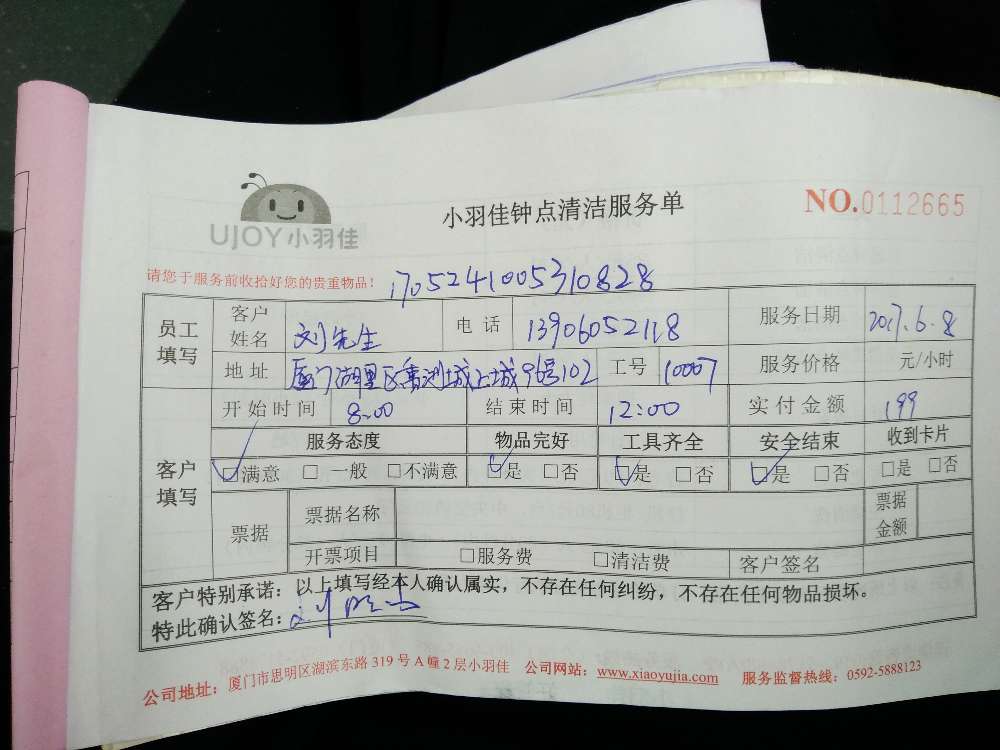 小羽佳钟点清洁服务单
NO.0112665
UJOY小羽佳
请您于服务前收拾好您的贵重物品！
1705241005310828
员工填写 客户姓名 刘先生 电话 13906052118 服务日期 2017.6.8
地址 厦门湖里区禹洲城上城96号102 工号 10007 服务价格 元/小时
客户填写 开始时间 8:00 结束时间 12:00 实付金额 199
服务态度 物品完好 工具齐全 安全结束 收到卡片
☑满意 □一般 □不满意 ☑是 □否 ☑是 □否 ☑是 □否 □是 □否
票据 票据名称 票据金额
开票项目 □服务费 □清洁费 客户签名
客户特别承诺：以上填写经本人确认属实，不存在任何纠纷，不存在任何物品损坏。
特此确认签名：
公司地址：厦门市思明区湖滨东路319号A幢2层小羽佳 公司网站：www.xiaoyujia.com 服务监督热线：0592-5888123